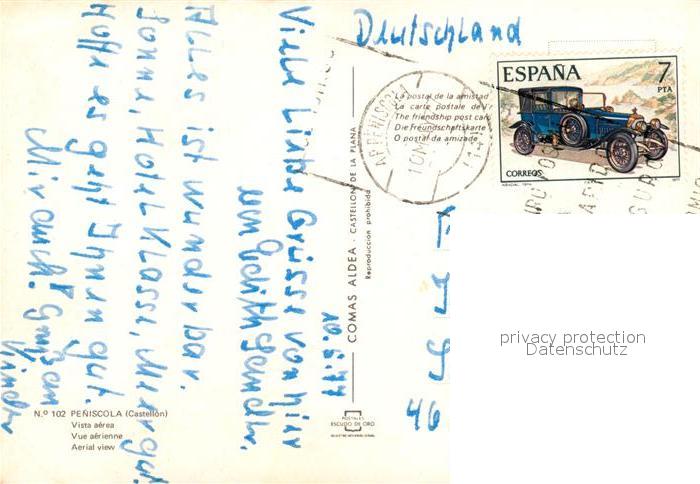 Deutschland
ESPAÑA
7
PTA
CORREOS
La postal de la amistad
La carte postale de l'
The friendship post card
Die Freundschaftskarte
O postal da amizade
10.5.77
Viele Liebe Grüsse von hier
Alles ist wunderbar.
Sonne, Hotel Klasse, Meer gut.
Hoffe es geht Ihnen gut.
Mir auch!
COMAS ALDEA - CASTELLON DE LA PLANA
Reproduccion prohibida
46
N.º 102 PEÑISCOLA (Castellón)
Vista aérea
Vue aérienne
Aerial view
POSTALES
ESCUDO DE ORO
privacy protection
Datenschutz